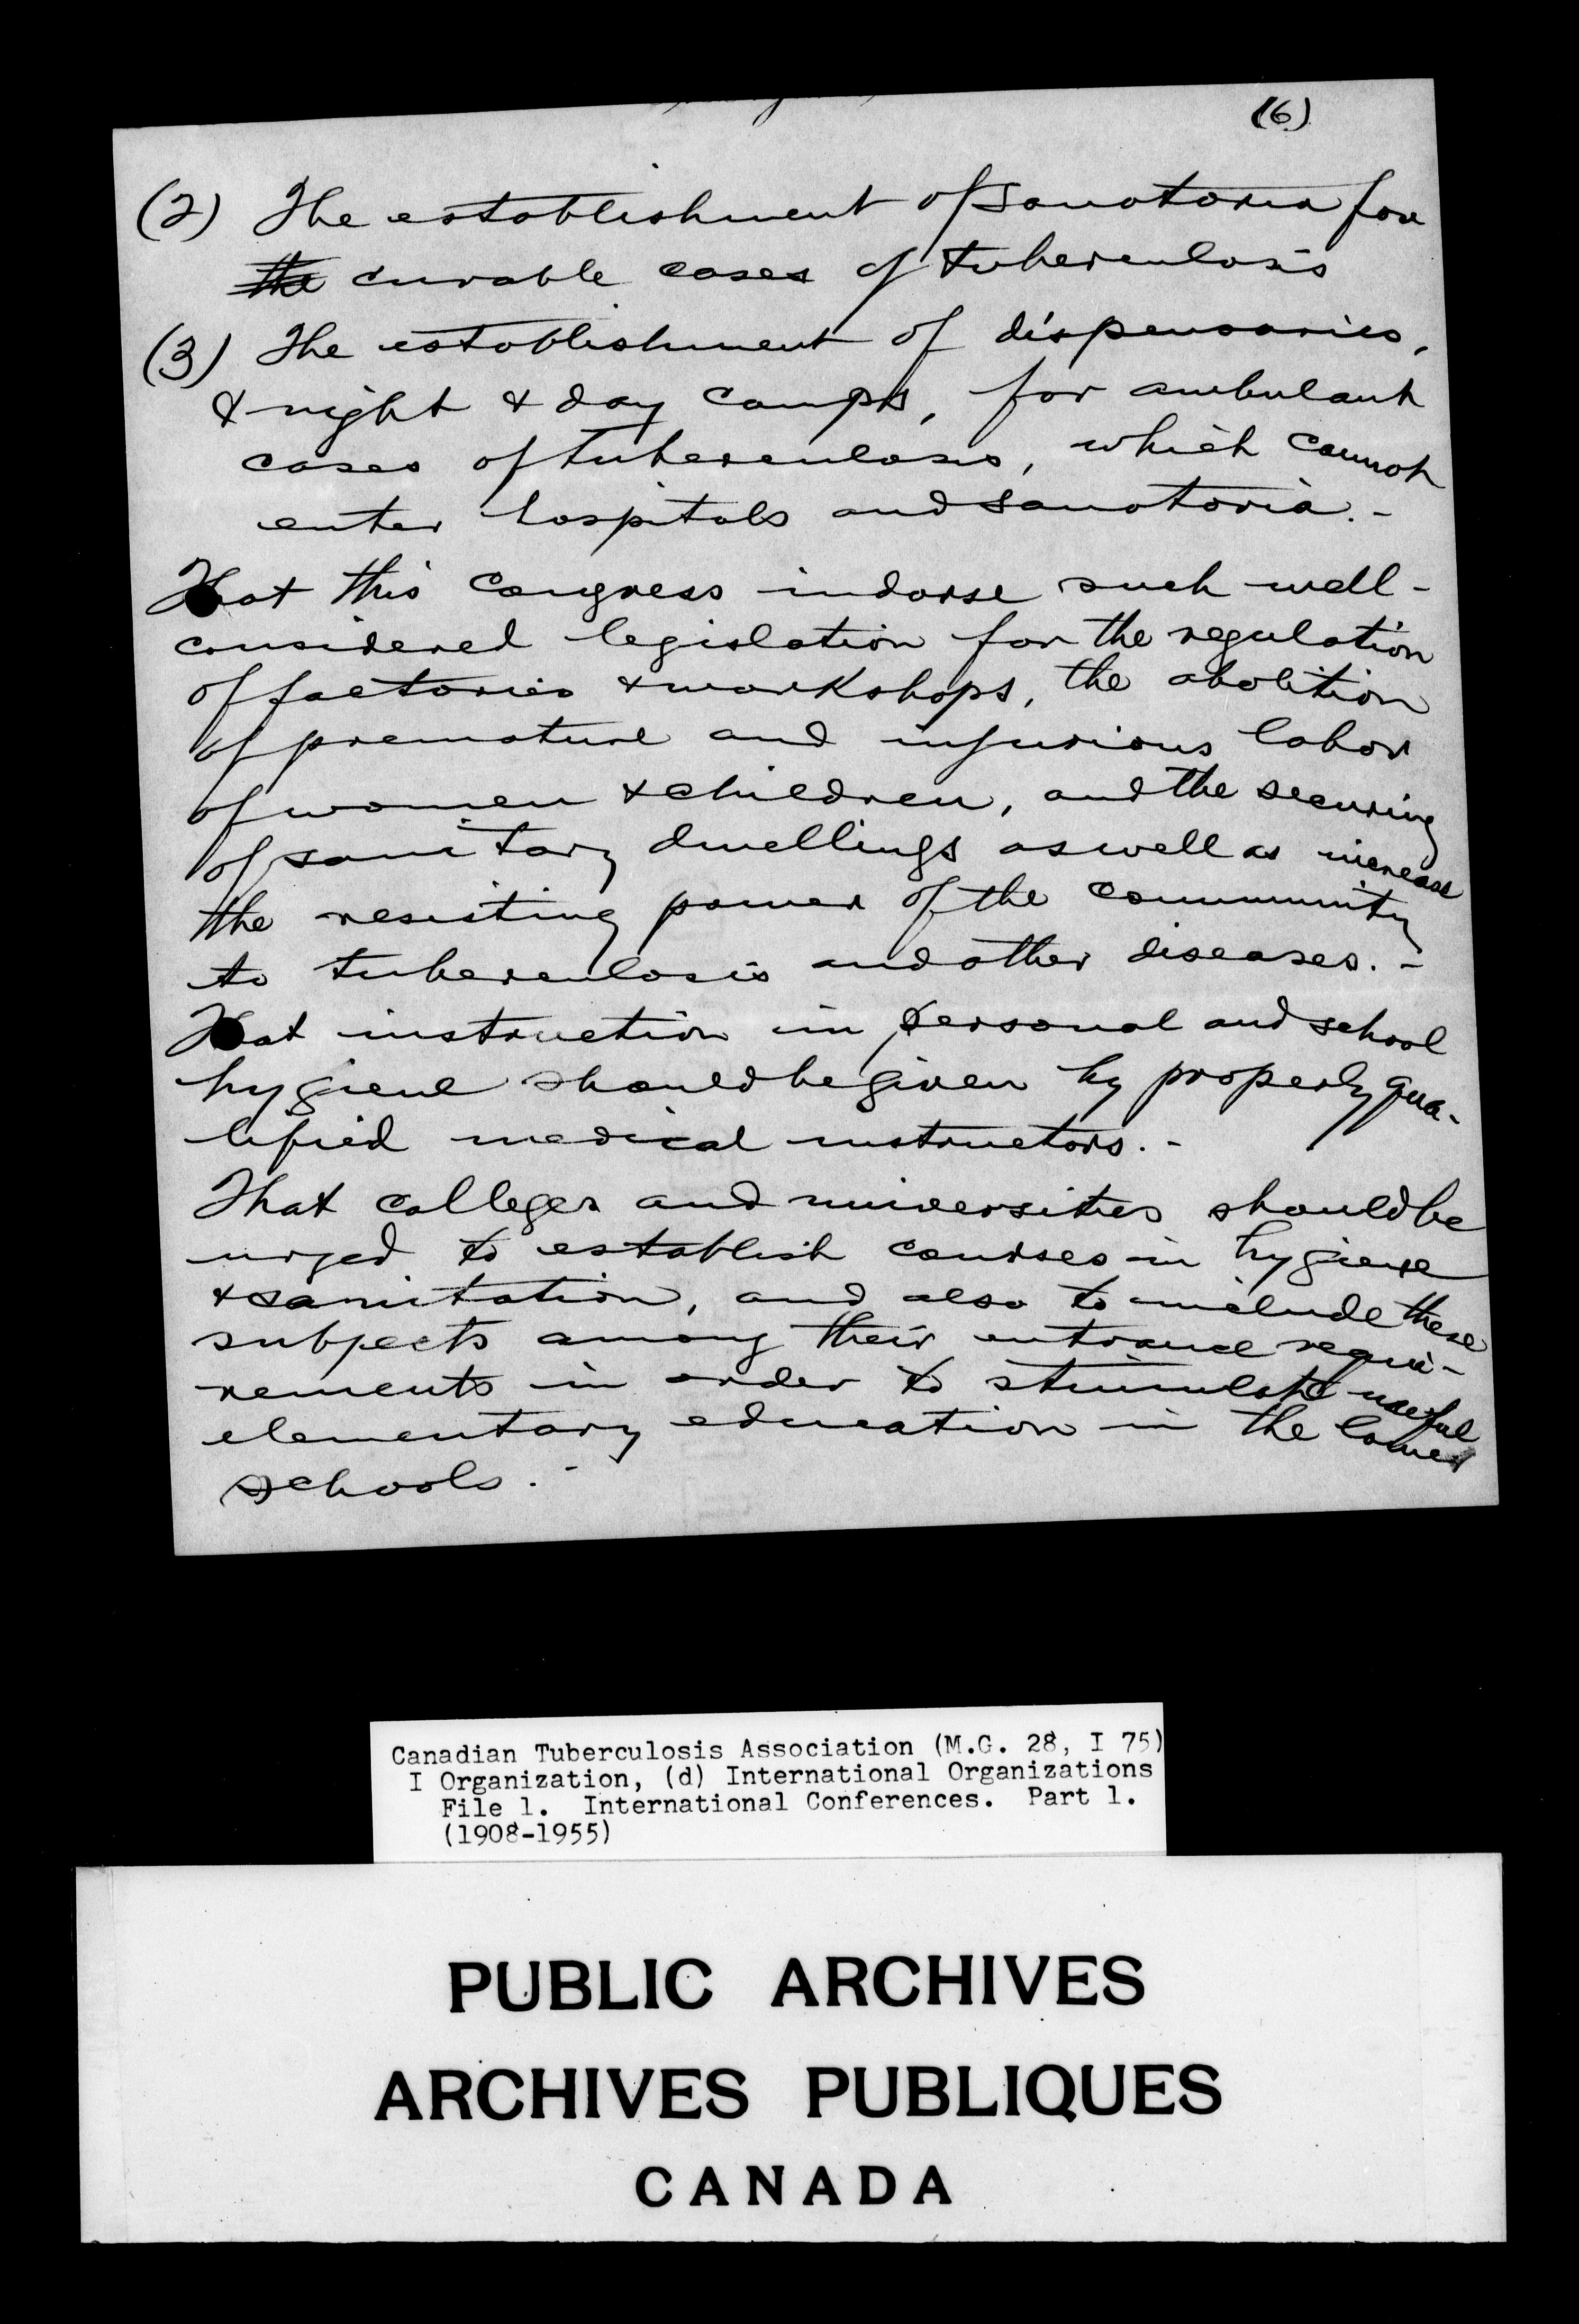 (6)
(2) The establishment of sanatoria for
the curable cases of tuberculosis
(3) The establishment of dispensaries,
& night & day camps, for ambulant
cases of tuberculosis, which cannot
enter hospitals and sanatoria. -
That this Congress indorse such well-
considered legislation for the regulation
of factories & workshops, the abolition
of premature and injurious labor
of women & children, and the securing
of sanitary dwellings as well as increase
the resisting power of the community
to tuberculosis and other diseases. -
That instruction in personal and school
hygiene should be given by properly qua-
lified medical instructors. -
That colleges and universities should be
urged to establish courses in hygiene
& sanitation, and also to include these
subjects among their entrance requi-
rements in order to stimulate useful
elementary education in the lower
schools. -
Canadian Tuberculosis Association (M.G. 28, I 75)
I Organization, (d) International Organizations
File 1. International Conferences. Part 1.
(1908-1955)
PUBLIC ARCHIVES
ARCHIVES PUBLIQUES
CANADA